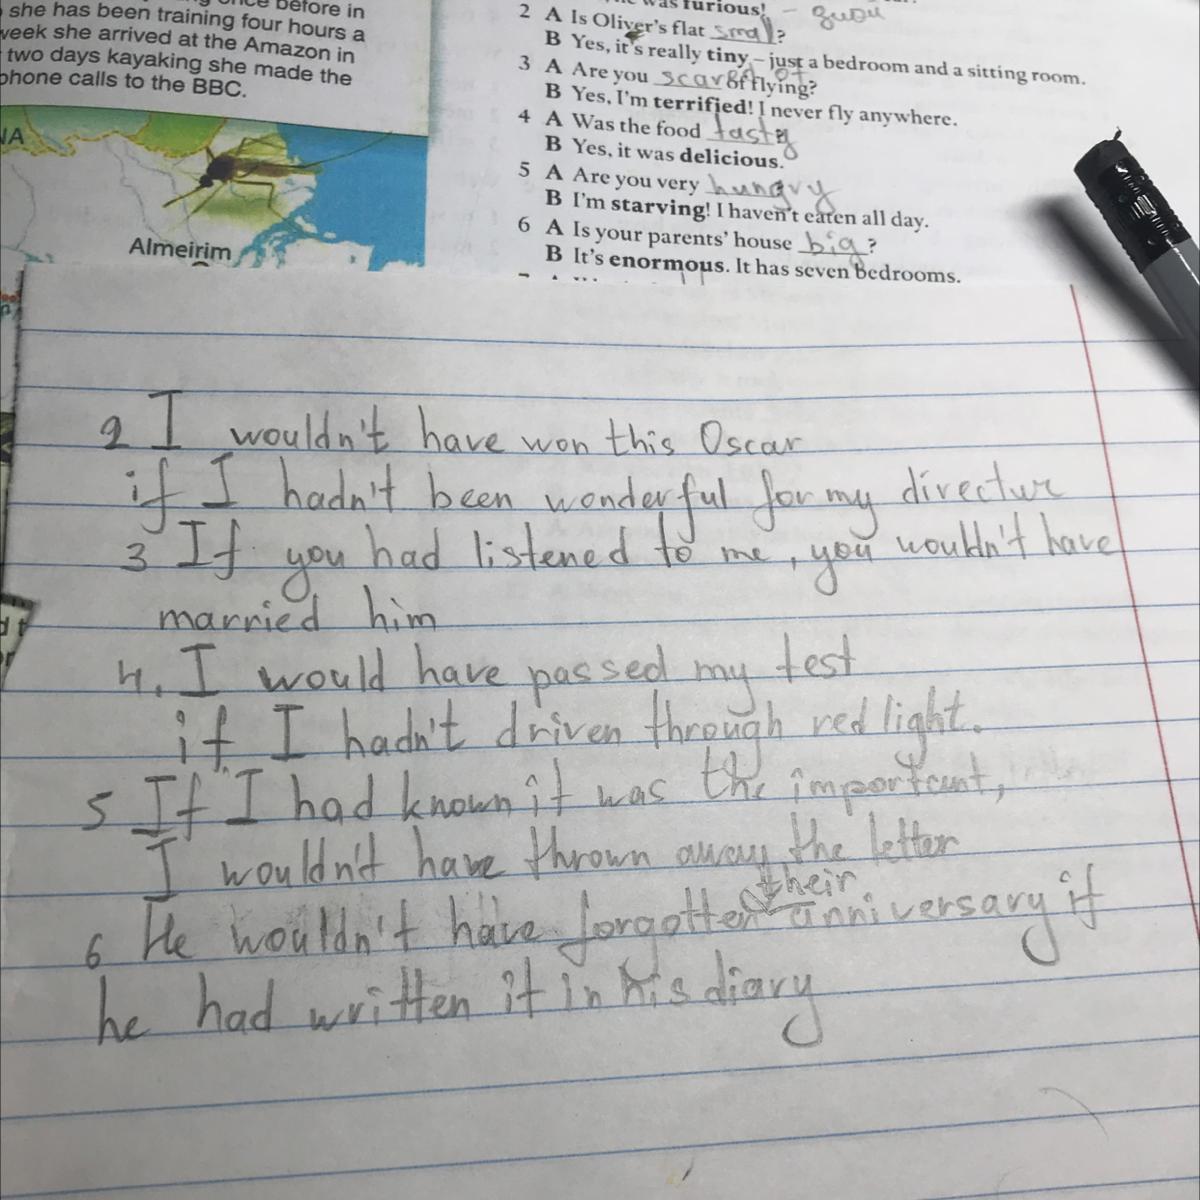 before in
she has been training four hours a
week she arrived at the Amazon in
two days kayaking she made the
phone calls to the BBC.
Almeirim
was furious!
2 A Is Oliver's flat small?
B Yes, it's really tiny – just a bedroom and a sitting room.
3 A Are you scared of flying?
B Yes, I'm terrified! I never fly anywhere.
4 A Was the food tasty
B Yes, it was delicious.
5 A Are you very hungry
B I'm starving! I haven't eaten all day.
6 A Is your parents' house big?
B It's enormous. It has seven bedrooms.
2 I wouldn't have won this Oscar
if I hadn't been wonderful for my directur
3 If you had listened to me, you wouldn't have
married him
4. I would have passed my test
if I hadn't driven through red light.
5 If I had known it was the important,
I wouldn't have thrown away the letter
their
6 He wouldn't have forgotten anniversary if
he had written it in his diary